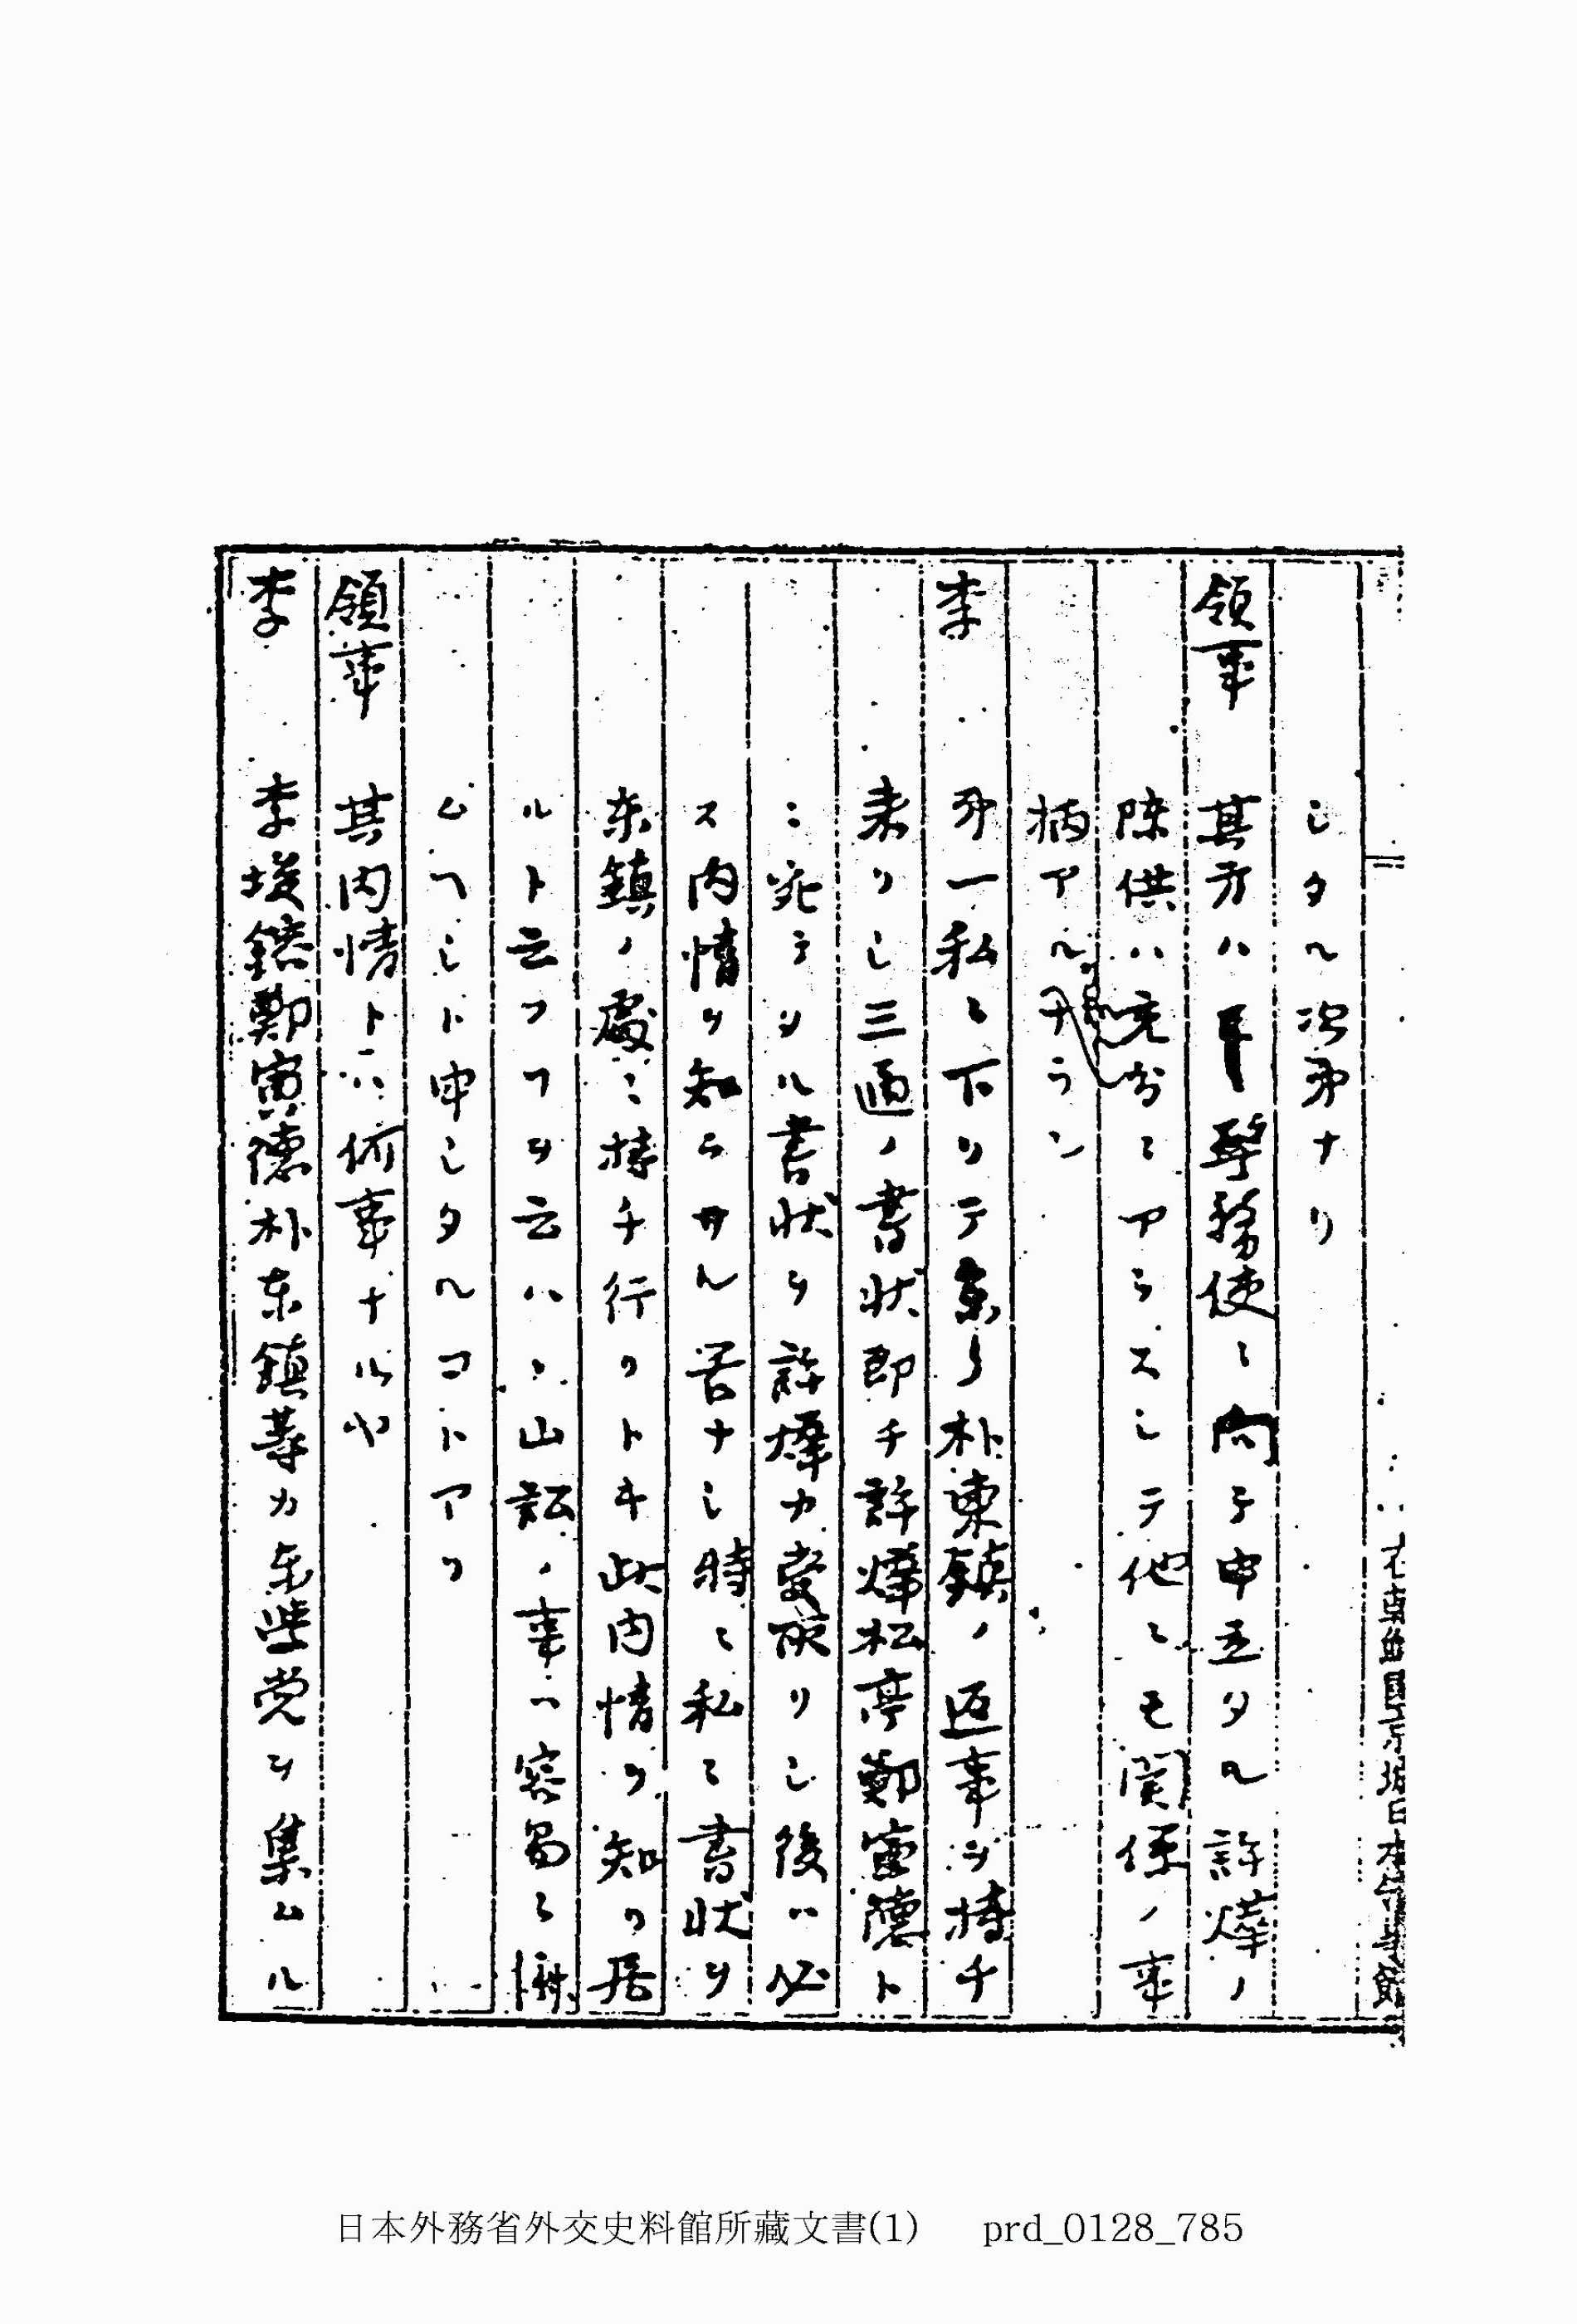 シタル次第ナリ
領事 其方ハ 督務使ニ向テ申立タル許燁ノ
陳供ハ充分ニアラスシテ他ニモ関係ノ事
柄アルナラン
李 第一私ニ下リテ来リ朴東鎮ノ返事ヲ持チ
来リシ三通ノ書状即チ許燁松亭鄭寅徳ト
ニ宛テタル書状ヲ許燁カ受取リシ後ハ必
ス内情ヲ知ラサル筈ナシ時ニ私ニ書状ヲ
東鎮ノ處ニ持チ行クトキ此内情ヲ知リ居
ルト云フコヲ云ハハ山訟ノ事ハ容易ニ
ムヘシト申シタルコトアリ
領事 其内情トハ何事ナルヤ
李 李 鄭寅徳朴東鎮等カ東学党ヲ集ムル
日本外務省外交史料館所藏文書(1) prd_0128_785